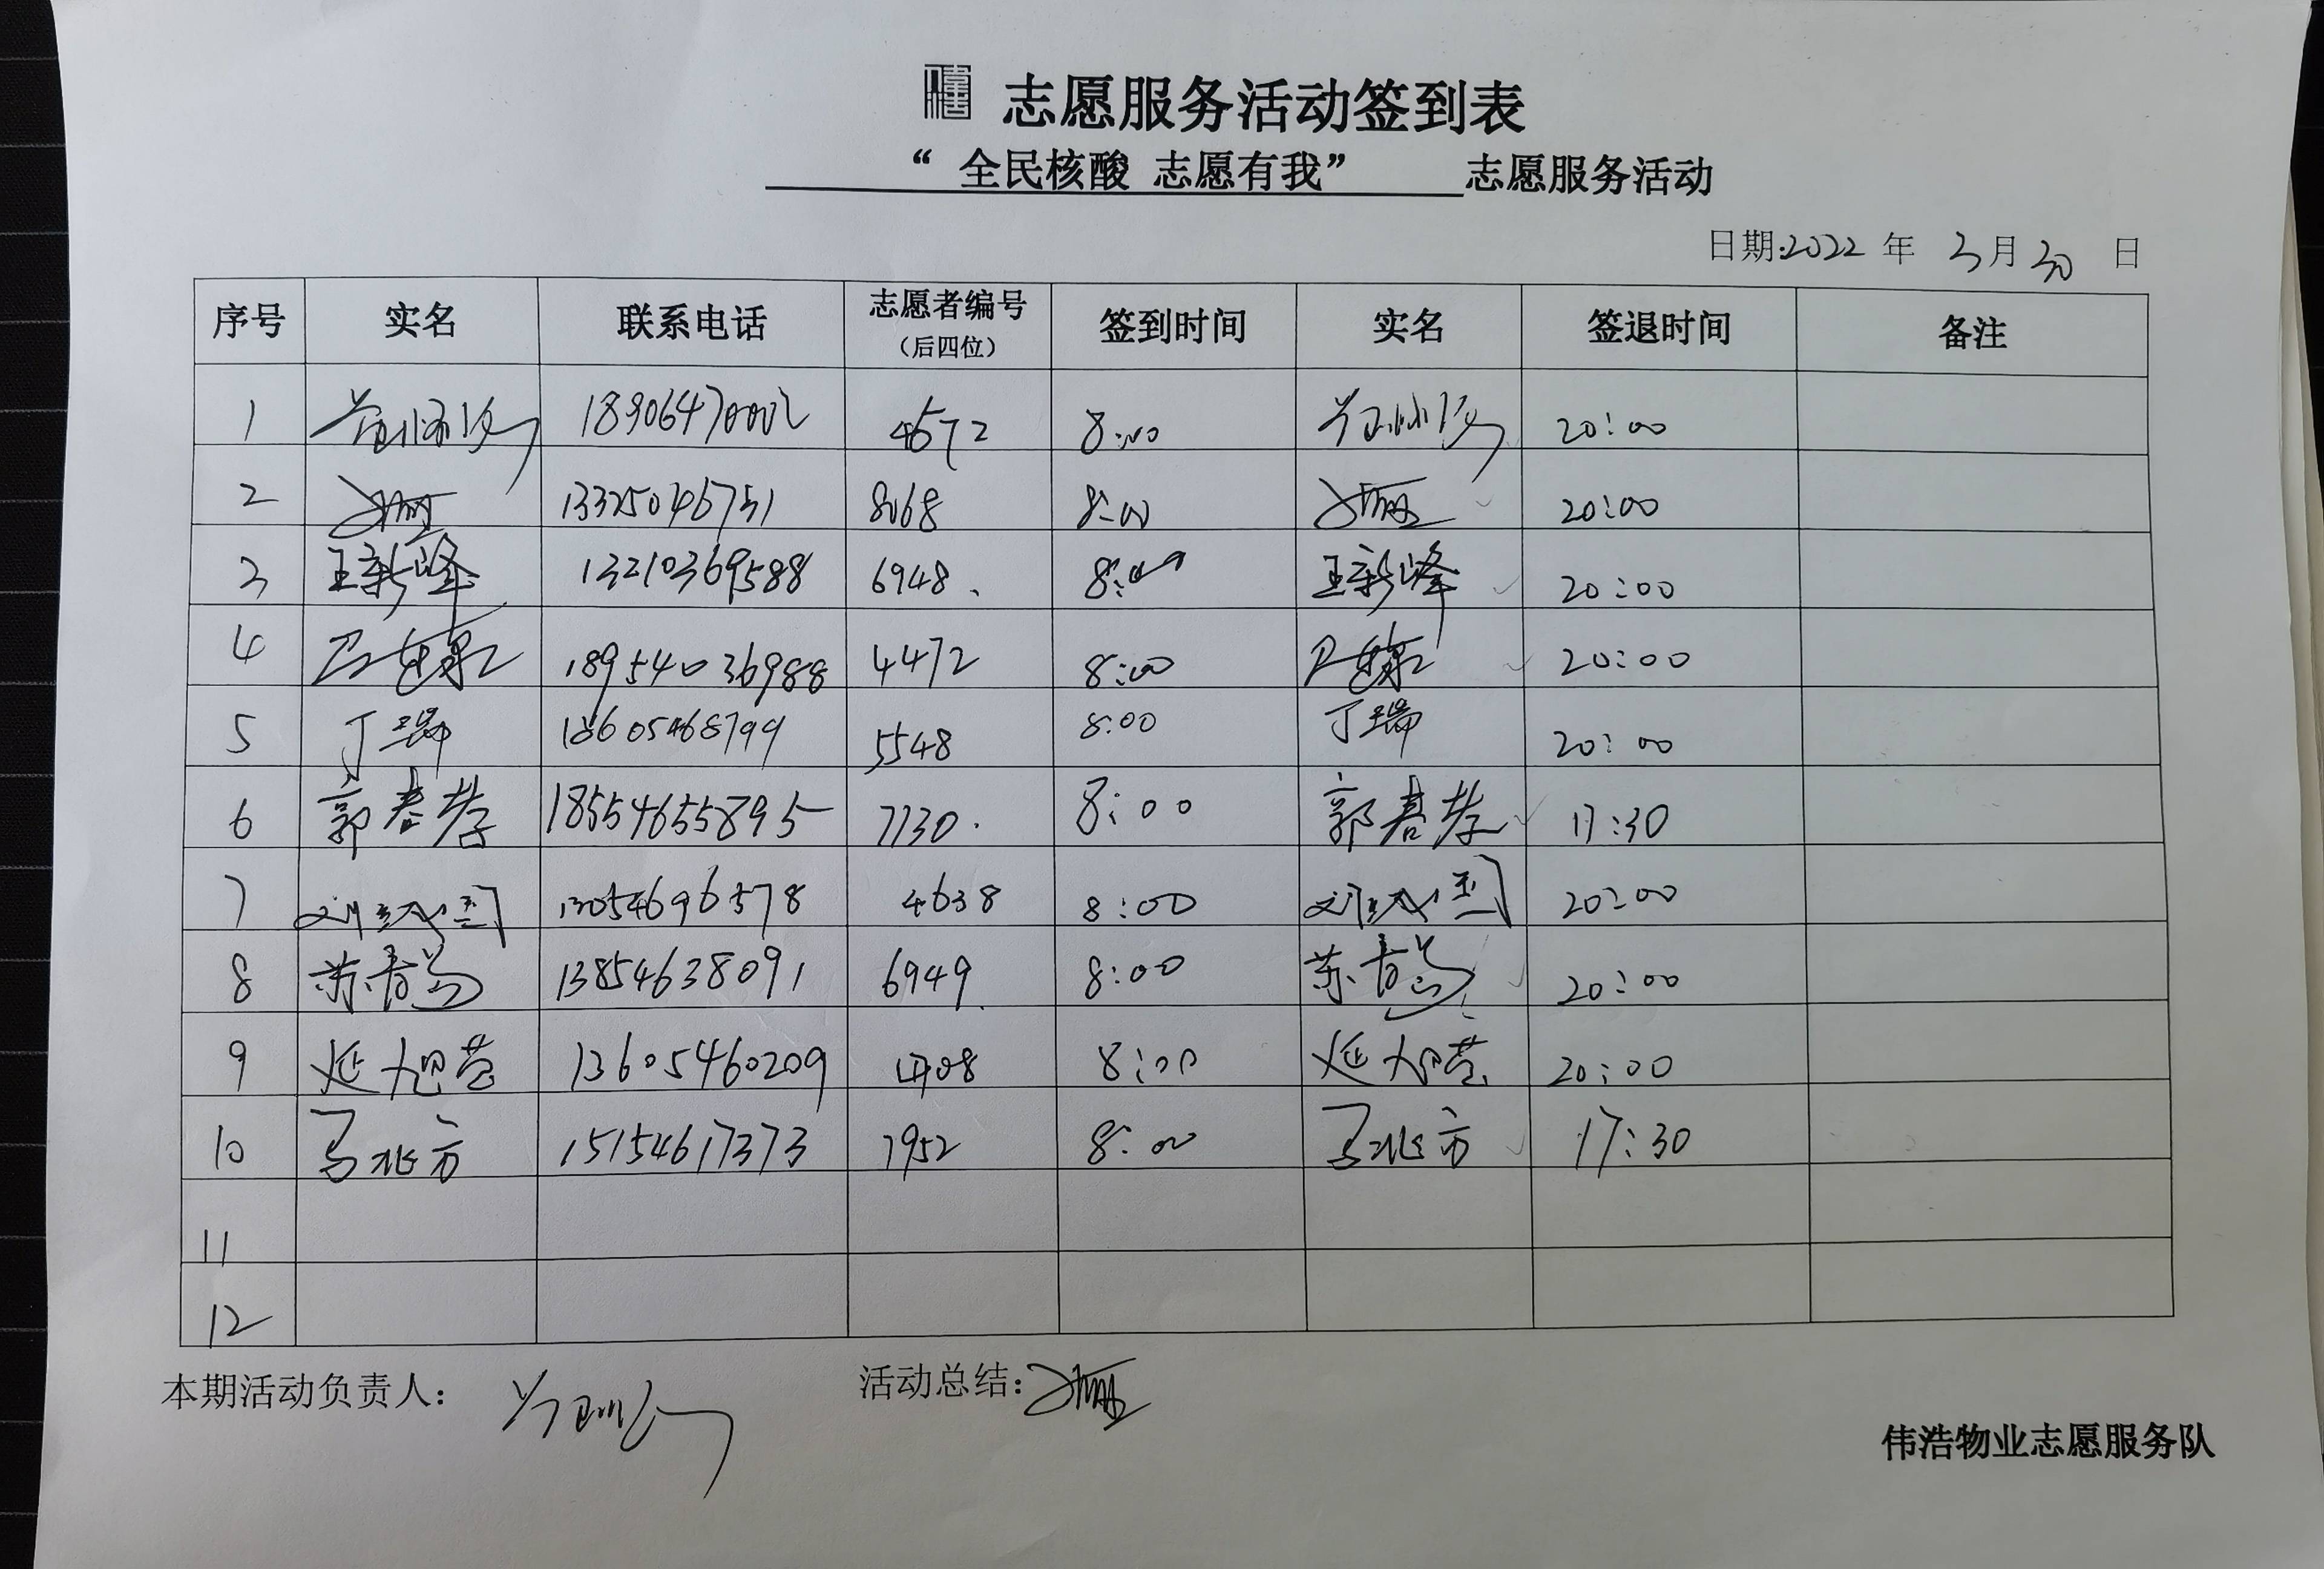 志愿服务活动签到表
“ 全民核酸 志愿有我” 志愿服务活动
日期:2022 年 3月30 日
序号 实名 联系电话 志愿者编号（后四位） 签到时间 实名 签退时间 备注
1 4672 8:00 20:00
2 8068 8:00 20:00
3 王新峰 13210369588 6948 8:00 王新峰 20:00
4 18954036988 4472 8:00 20:00
5 丁瑞 18605468799 5548 8:00 丁瑞 20:00
6 郭春孝 18554655895 7130 8:00 郭春孝 17:30
7 13054696578 4638 8:00 20:00
8 13854638091 6949 8:00 20:00
9 延旭营 13605460209 8:00 延旭营 20:00
10 马兆方 15154617373 7952 8:00 马兆方 17:30
11
12
本期活动负责人： 活动总结：
伟浩物业志愿服务队